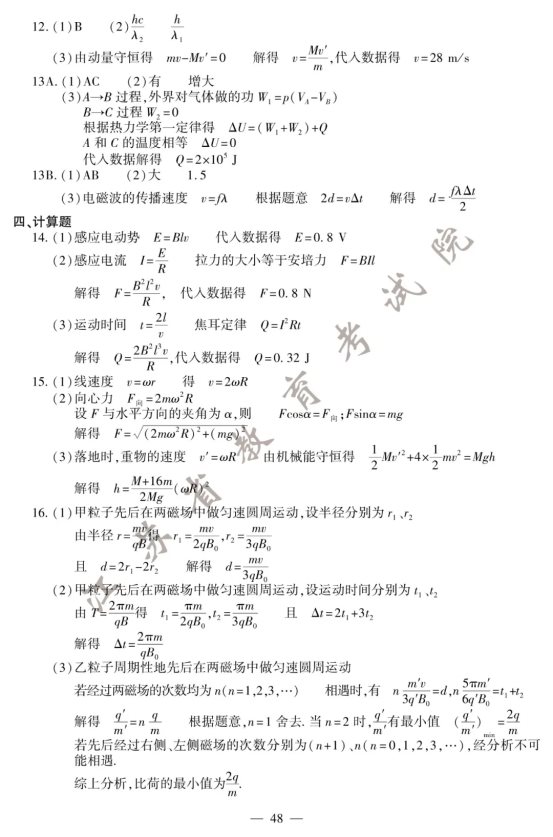 12. (1) B  (2) hc/λ₂  h/λ₁
(3) 由动量守恒得 mv-Mv′=0  解得 v=Mv′/m, 代入数据得 v=28 m/s
13A. (1) AC  (2) 有  增大
(3) A→B 过程, 外界对气体做的功 W₁=p(V_A-V_B)
B→C 过程 W₂=0
根据热力学第一定律得 ΔU=(W₁+W₂)+Q
A 和 C 的温度相等 ΔU=0
代入数据解得 Q=2×10⁵ J
13B. (1) AB  (2) 大  1.5
(3) 电磁波的传播速度 v=fλ  根据题意 2d=vΔt  解得 d=fλΔt/2
四、计算题
14. (1) 感应电动势 E=Blv  代入数据得 E=0.8 V
(2) 感应电流 I=E/R  拉力的大小等于安培力 F=BIl
解得 F=B²l²v/R, 代入数据得 F=0.8 N
(3) 运动时间 t=2l/v  焦耳定律 Q=I²Rt
解得 Q=2B²l³v/R, 代入数据得 Q=0.32 J
15. (1) 线速度 v=ωr  得 v=2ωR
(2) 向心力 F向=2mω²R
设 F 与水平方向的夹角为 α, 则 Fcosα=F向; Fsinα=mg
解得 F=√((2mω²R)²+(mg)²)
(3) 落地时, 重物的速度 v′=ωR  由机械能守恒得 1/2 Mv′²+4×1/2 mv²=Mgh
解得 h=(M+16m)/(2Mg) (ωR)²
16. (1) 甲粒子先后在两磁场中做匀速圆周运动, 设半径分别为 r₁、r₂
由半径 r=mv/qB 得 r₁=mv/2qB₀, r₂=mv/3qB₀
且 d=2r₁-2r₂  解得 d=mv/3qB₀
(2) 甲粒子先后在两磁场中做匀速圆周运动, 设运动时间分别为 t₁、t₂
由 T=2πm/qB 得 t₁=πm/2qB₀, t₂=πm/3qB₀  且 Δt=2t₁+3t₂
解得 Δt=2πm/qB₀
(3) 乙粒子周期性地先后在两磁场中做匀速圆周运动
若经过两磁场的次数均为 n(n=1,2,3,…)  相遇时, 有 n m′v/3q′B₀=d, n 5πm′/6q′B₀=t₁+t₂
解得 q′/m′=n q/m  根据题意, n=1 舍去. 当 n=2 时, q′/m′有最小值 (q′/m′)min=2q/m
若先后经过右侧、左侧磁场的次数分别为(n+1)、n(n=0,1,2,3,…), 经分析不可
能相遇.
综上分析, 比荷的最小值为2q/m.
— 48 —
江苏省教育考试院